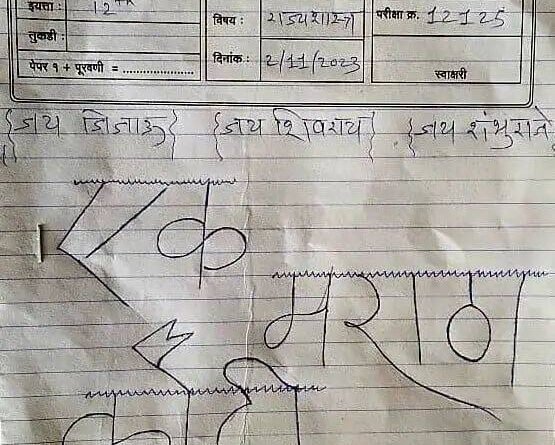 इयत्ता : 12th विषय : राज्यशास्त्र परीक्षा क्र. 12125
तुकडी :
पेपर १ + पूरवणी = .................... दिनांक : 2/11/2023
स्वाक्षरी
{जय जिजाऊ} {जय शिवराय} {जय शंभुराजे
एक
मराठा